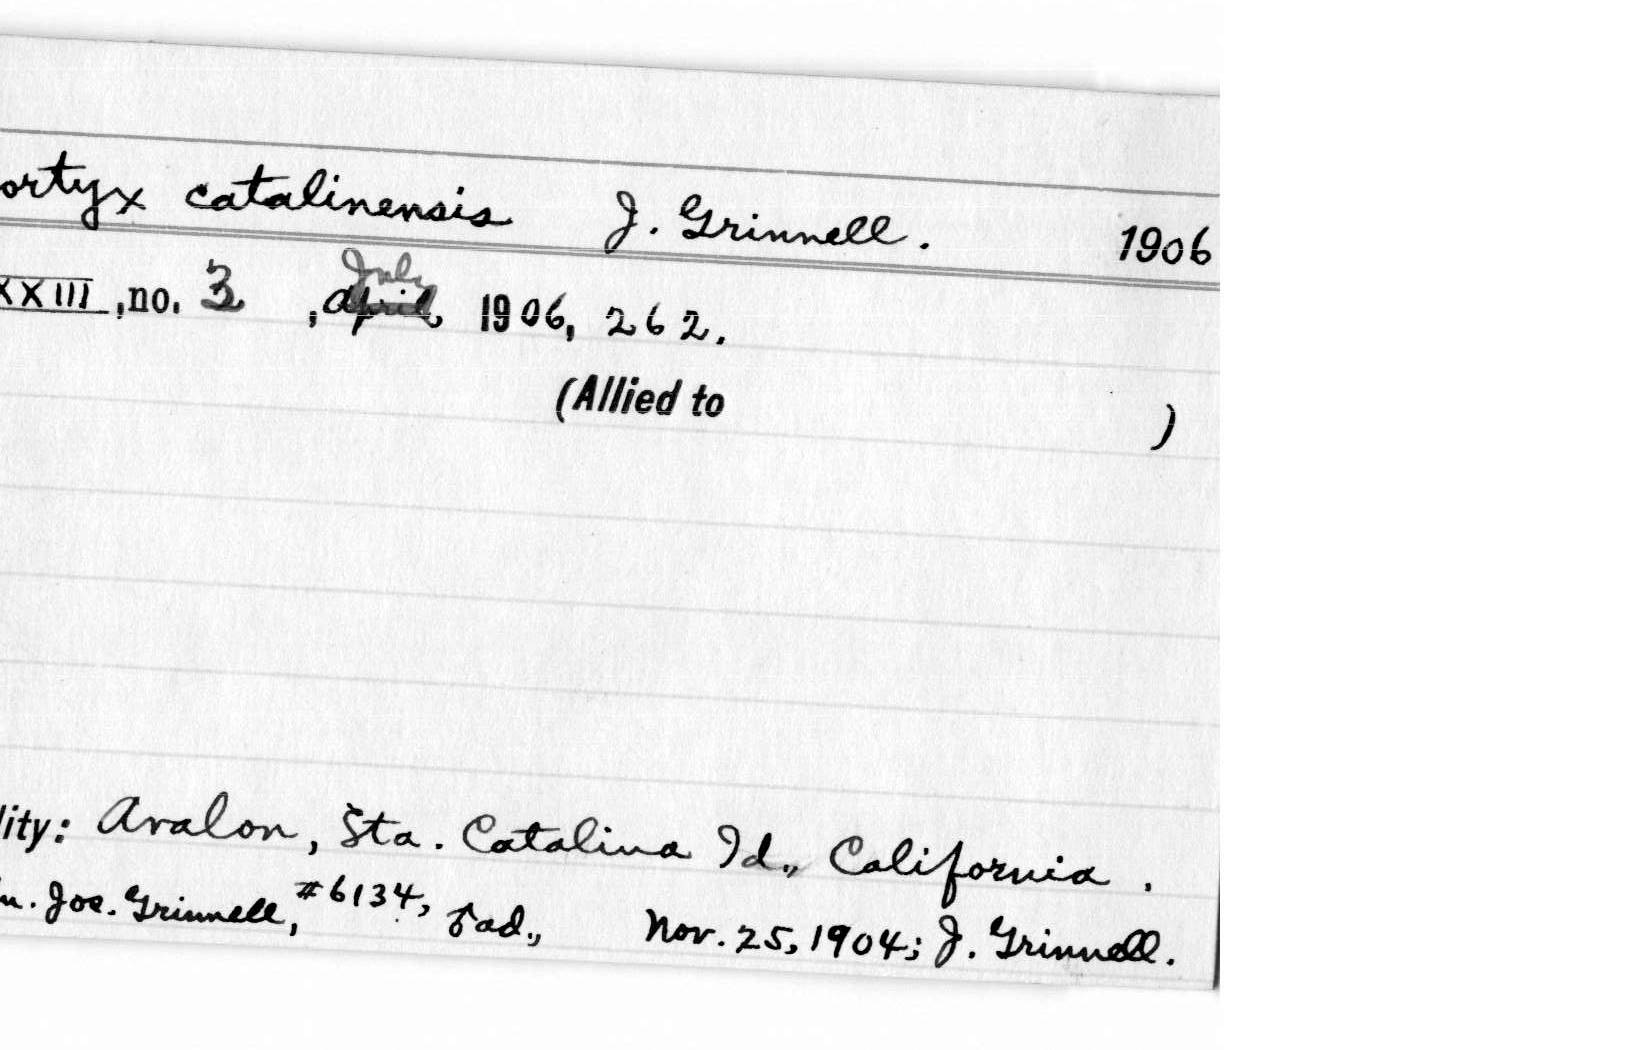 ortyx catalinensis J. Grinnell. 1906
XXIII, no. 3, July 1906, 262.
(Allied to )
lity: Avalon, Sta. Catalina Id., California.
n. Jos. Grinnell, #6134, ad., Nov. 25, 1904; J. Grinnell.